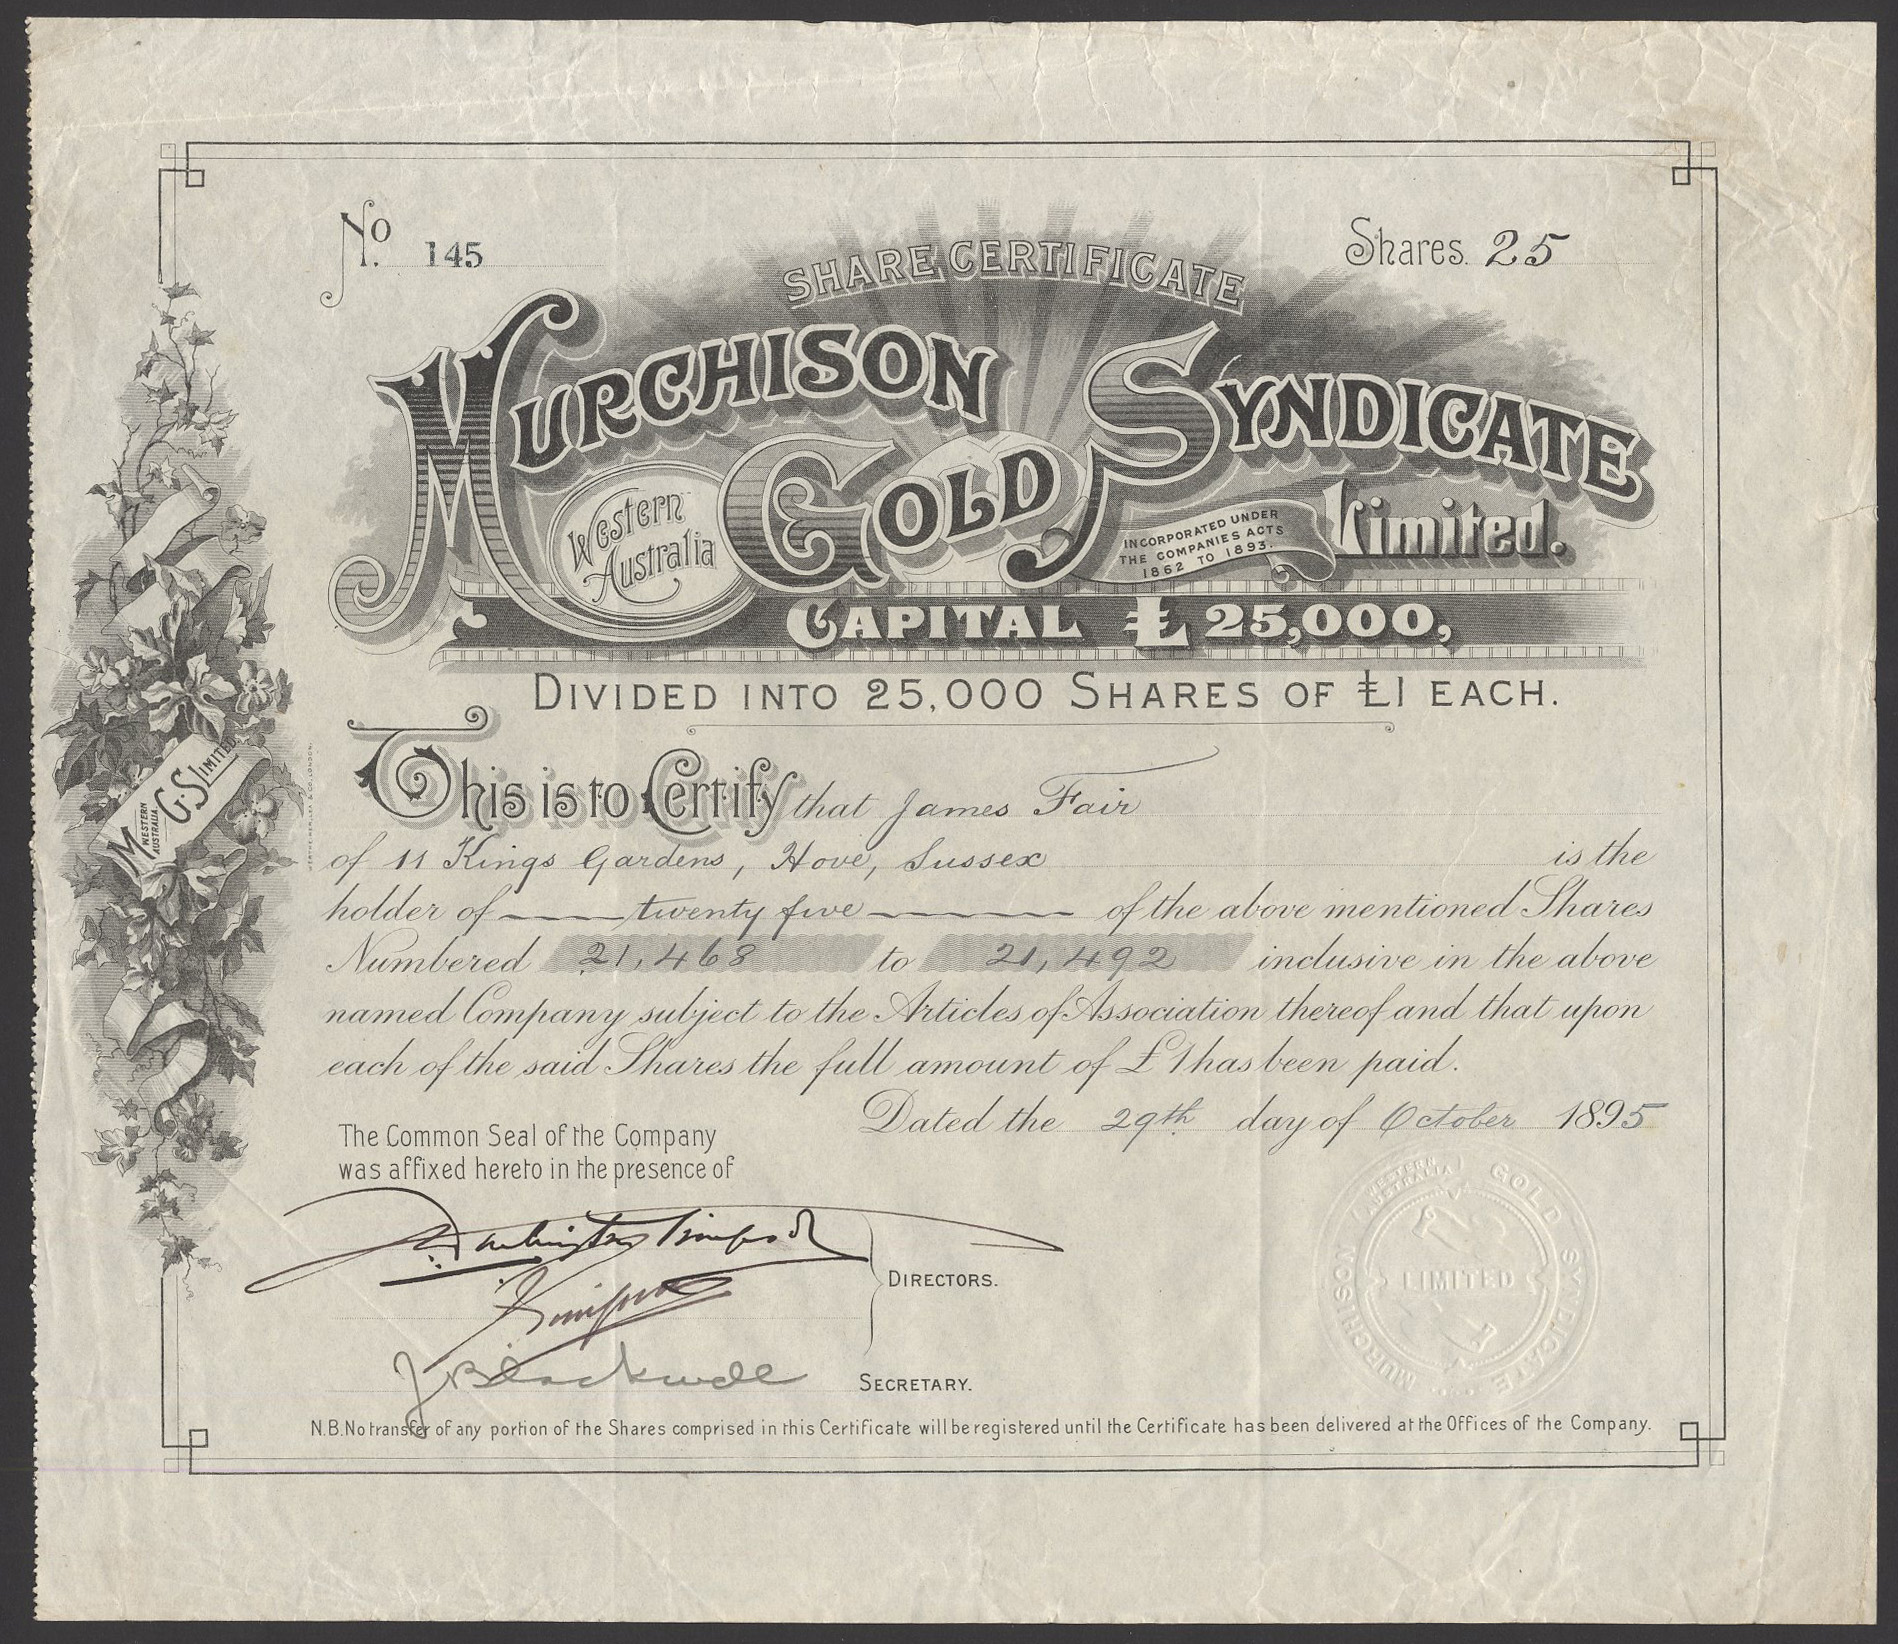 No. 145
Shares. 25
SHARE CERTIFICATE
MURCHISON GOLD SYNDICATE Limited.
Western Australia
INCORPORATED UNDER
THE COMPANIES ACTS
1862 TO 1893.
CAPITAL £25,000,
DIVIDED INTO 25,000 SHARES OF £1 EACH.
This is to Certify that James Fair
of 11 Kings Gardens, Hove, Sussex is the
holder of twenty five of the above mentioned Shares
Numbered 21,468 to 21,492 inclusive in the above
named Company subject to the Articles of Association thereof and that upon
each of the said Shares the full amount of £1 has been paid.
Dated the 29th day of October 1895
The Common Seal of the Company
was affixed hereto in the presence of
DIRECTORS.
J Blackwell
SECRETARY.
N.B. No transfer of any portion of the Shares comprised in this Certificate will be registered until the Certificate has been delivered at the Offices of the Company.
M
WESTERN
AUSTRALIA
G.S LIMITED
MURCHISON (WESTERN AUSTRALIA) GOLD SYNDICATE
LIMITED